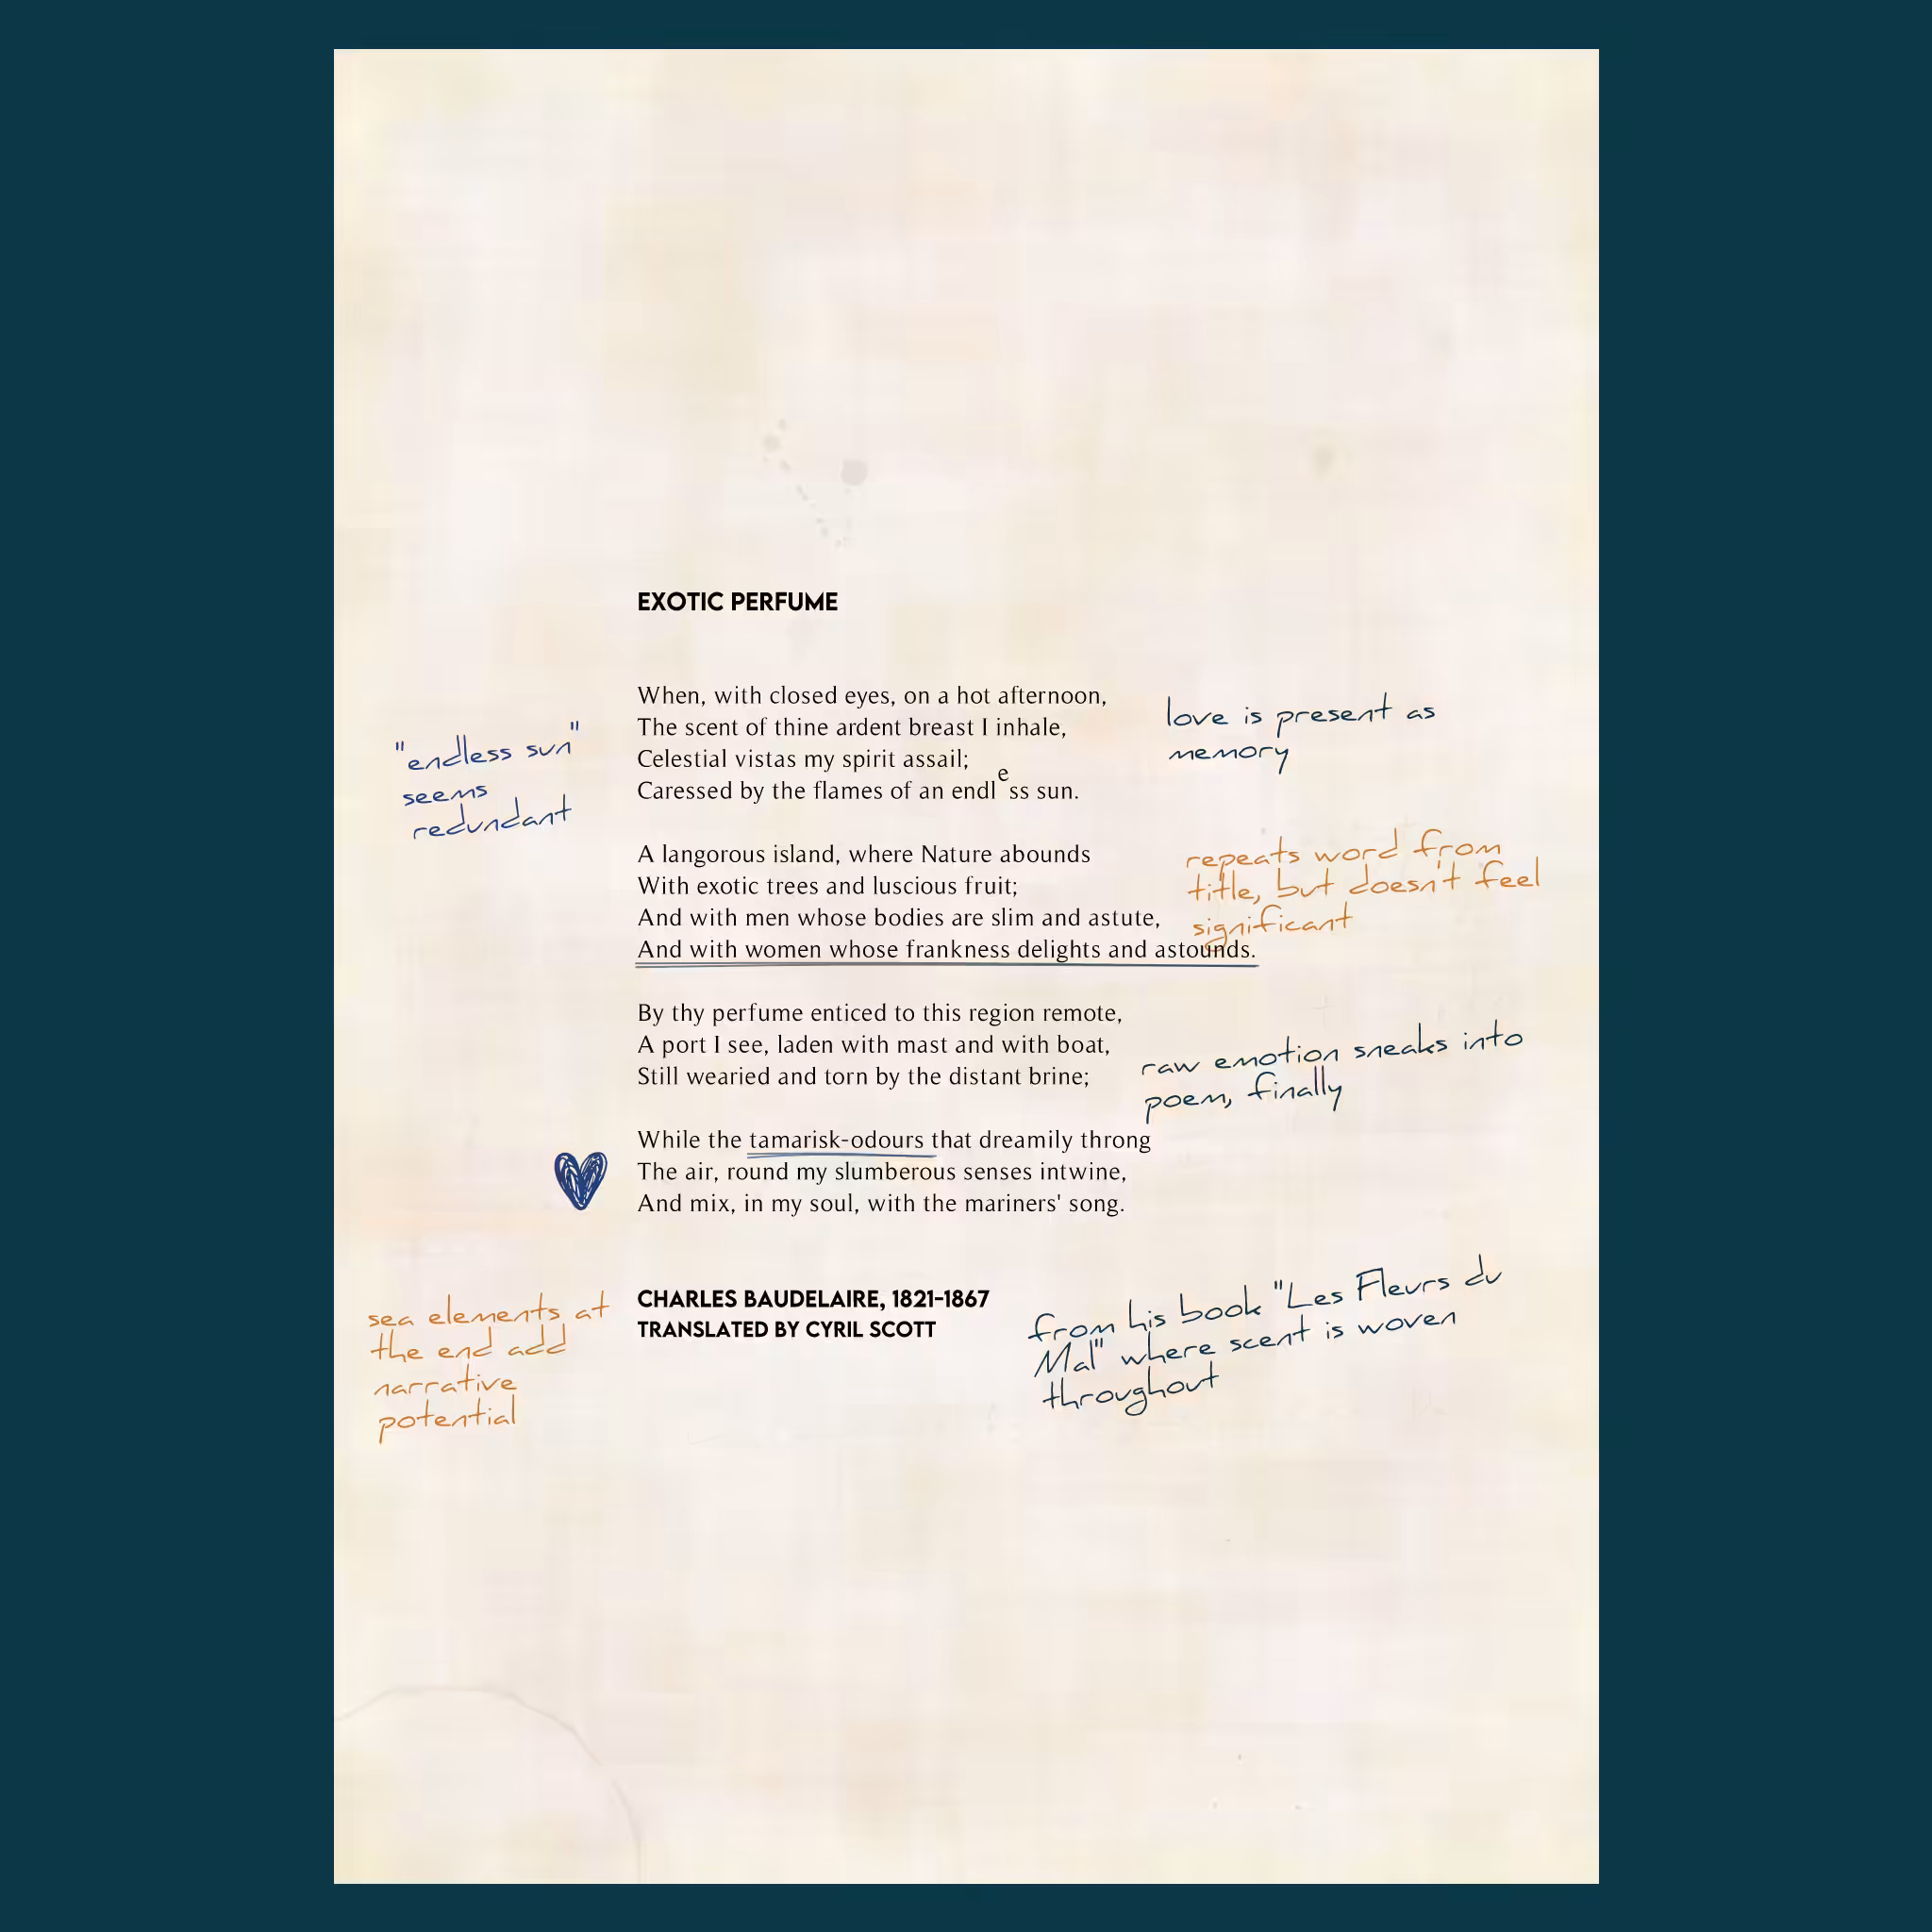 EXOTIC PERFUME
When, with closed eyes, on a hot afternoon,
The scent of thine ardent breast I inhale,
Celestial vistas my spirit assail;
Caressed by the flames of an endless sun.
love is present as
memory
"endless sun"
seems
redundant
A langorous island, where Nature abounds
With exotic trees and luscious fruit;
And with men whose bodies are slim and astute,
And with women whose frankness delights and astounds.
repeats word from
title, but doesn't feel
significant
By thy perfume enticed to this region remote,
A port I see, laden with mast and with boat,
Still wearied and torn by the distant brine;
raw emotion sneaks into
poem, finally
While the tamarisk-odours that dreamily throng
The air, round my slumberous senses intwine,
And mix, in my soul, with the mariners' song.
CHARLES BAUDELAIRE, 1821-1867
TRANSLATED BY CYRIL SCOTT
sea elements at
the end add
narrative
potential
from his book "Les Fleurs du
Mal" where scent is woven
throughout